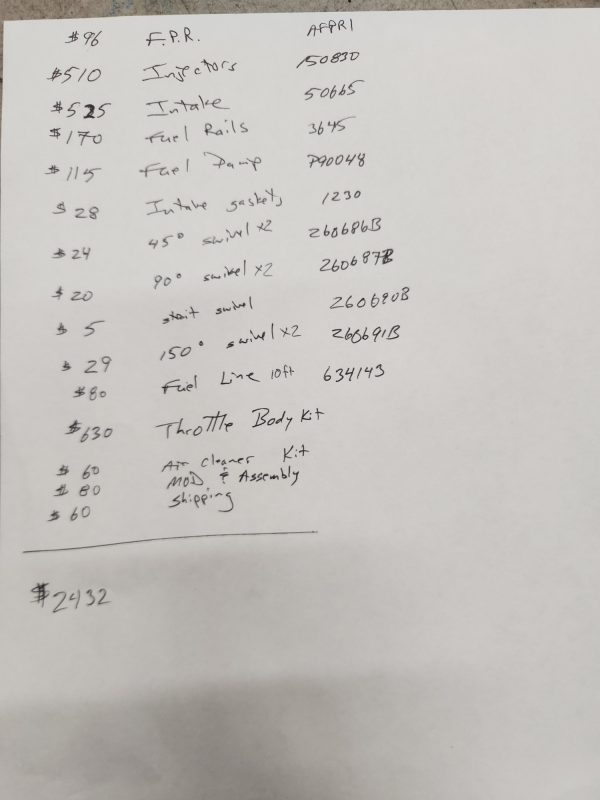 $96 F.P.R. AFPR1
$510 Injectors 150830
$525 Intake 50665
$170 Fuel Rails 3645
$115 Fuel Damp P90048
$28 Intake gaskets 1230
$24 45° swivel x2 260686B
$20 90° swivel x2 260687B
$5 strait swivel 260680B
$29 150° swivel x2 260691B
$80 Fuel Line 10ft 634143
$630 Throttle Body Kit
$60 Air Cleaner Kit
$80 MOD & Assembly
$60 Shipping
$2432